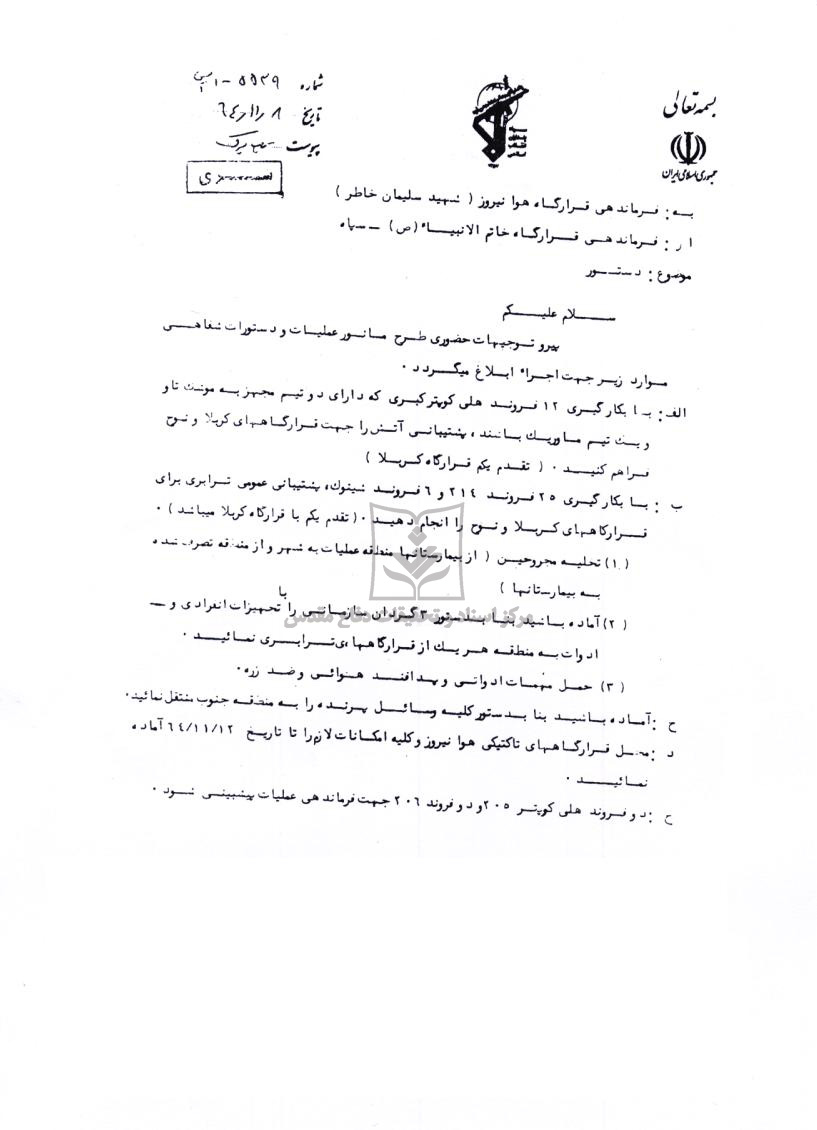 بسمه تعالی
جمهوری اسلامی ایران
شماره ۵۵۲۹-۱
تاریخ ۸ / ۱۱ / ٦٤
پیوست
بـه : فـرمانـدهی قـرارگـاه هوا نیروز ( شهید سلیمان خاطر )
از : فـرماندهـی قـرارگـاه خاتم الانبیـاء (ص) ــ سپاه
موضوع : دستـور
سـلام علیـکم
پیرو تـوجیهات حضوری طـرح مـانـور عملیـات و دستورات شفاهـی
مـوارد زیـر جهت اجراء ابـلاغ میگـردد .
الف : بـا بکارگیری ۱۲ فـرونـد هلی کوپتر کبری که دارای دو تیم مجهز بـه موشک تاو
و یک تیم مـاوریـک بـاشند ، پشتیبانـی آتش را جهت قـرارگـاههای کربلا و نـوح
فـراهم کنیـد . ( تقـدم یکم قـرارگاه کـربـلا )
ب : بـا بکارگیری ۲۵ فرونـد ۲۱٤ و ٦ فـرونـد شینوک، پشتیبانی عمومی تـرابری برای
قـرارگاههای کـربـلا و نـوح را انجام دهیـد . ( تقدم یکم با قرارگاه کربلا میباشد ) .
(۱) تخلیـه مجروحیـن ( از بیمارستانها منطقه عملیات به شهر و از منطقه تصرف شده
بـه بیمارستانها )
(۲) آماده بـاشیـد بنـا بـدستور ۳ گـردان سازمـانـی را با تجهیزات انفرادی و ــ
ادوات بـه منطقـه هـر یـک از قـرارگاهها،ی تـرابـری نمائیـد .
(۳) حمـل مهمـات ادواتـی و پـدافنـد هـوائـی و ضـد زره .
ح : آمـاده بـاشیـد بنا بـدستور کلیـه وسـائـل پـرنـده را بـه منطقـه جنوب منتقل نمائید.
د : محـل قـرارگـاههای تاکتیکی هوا نیروز و کلیه امکانات لازم را تا تاریخ ٦٤/۱۱/۱۲ آماده
نمائیـد .
ح : دو فـرونـد هلی کوپتـر ۲۰۵ و دو فروند ۲۰٦ جهت فرماندهی عملیات پیشبینـی شـود .
مرکز اسناد و تحقیقات دفاع مقدس